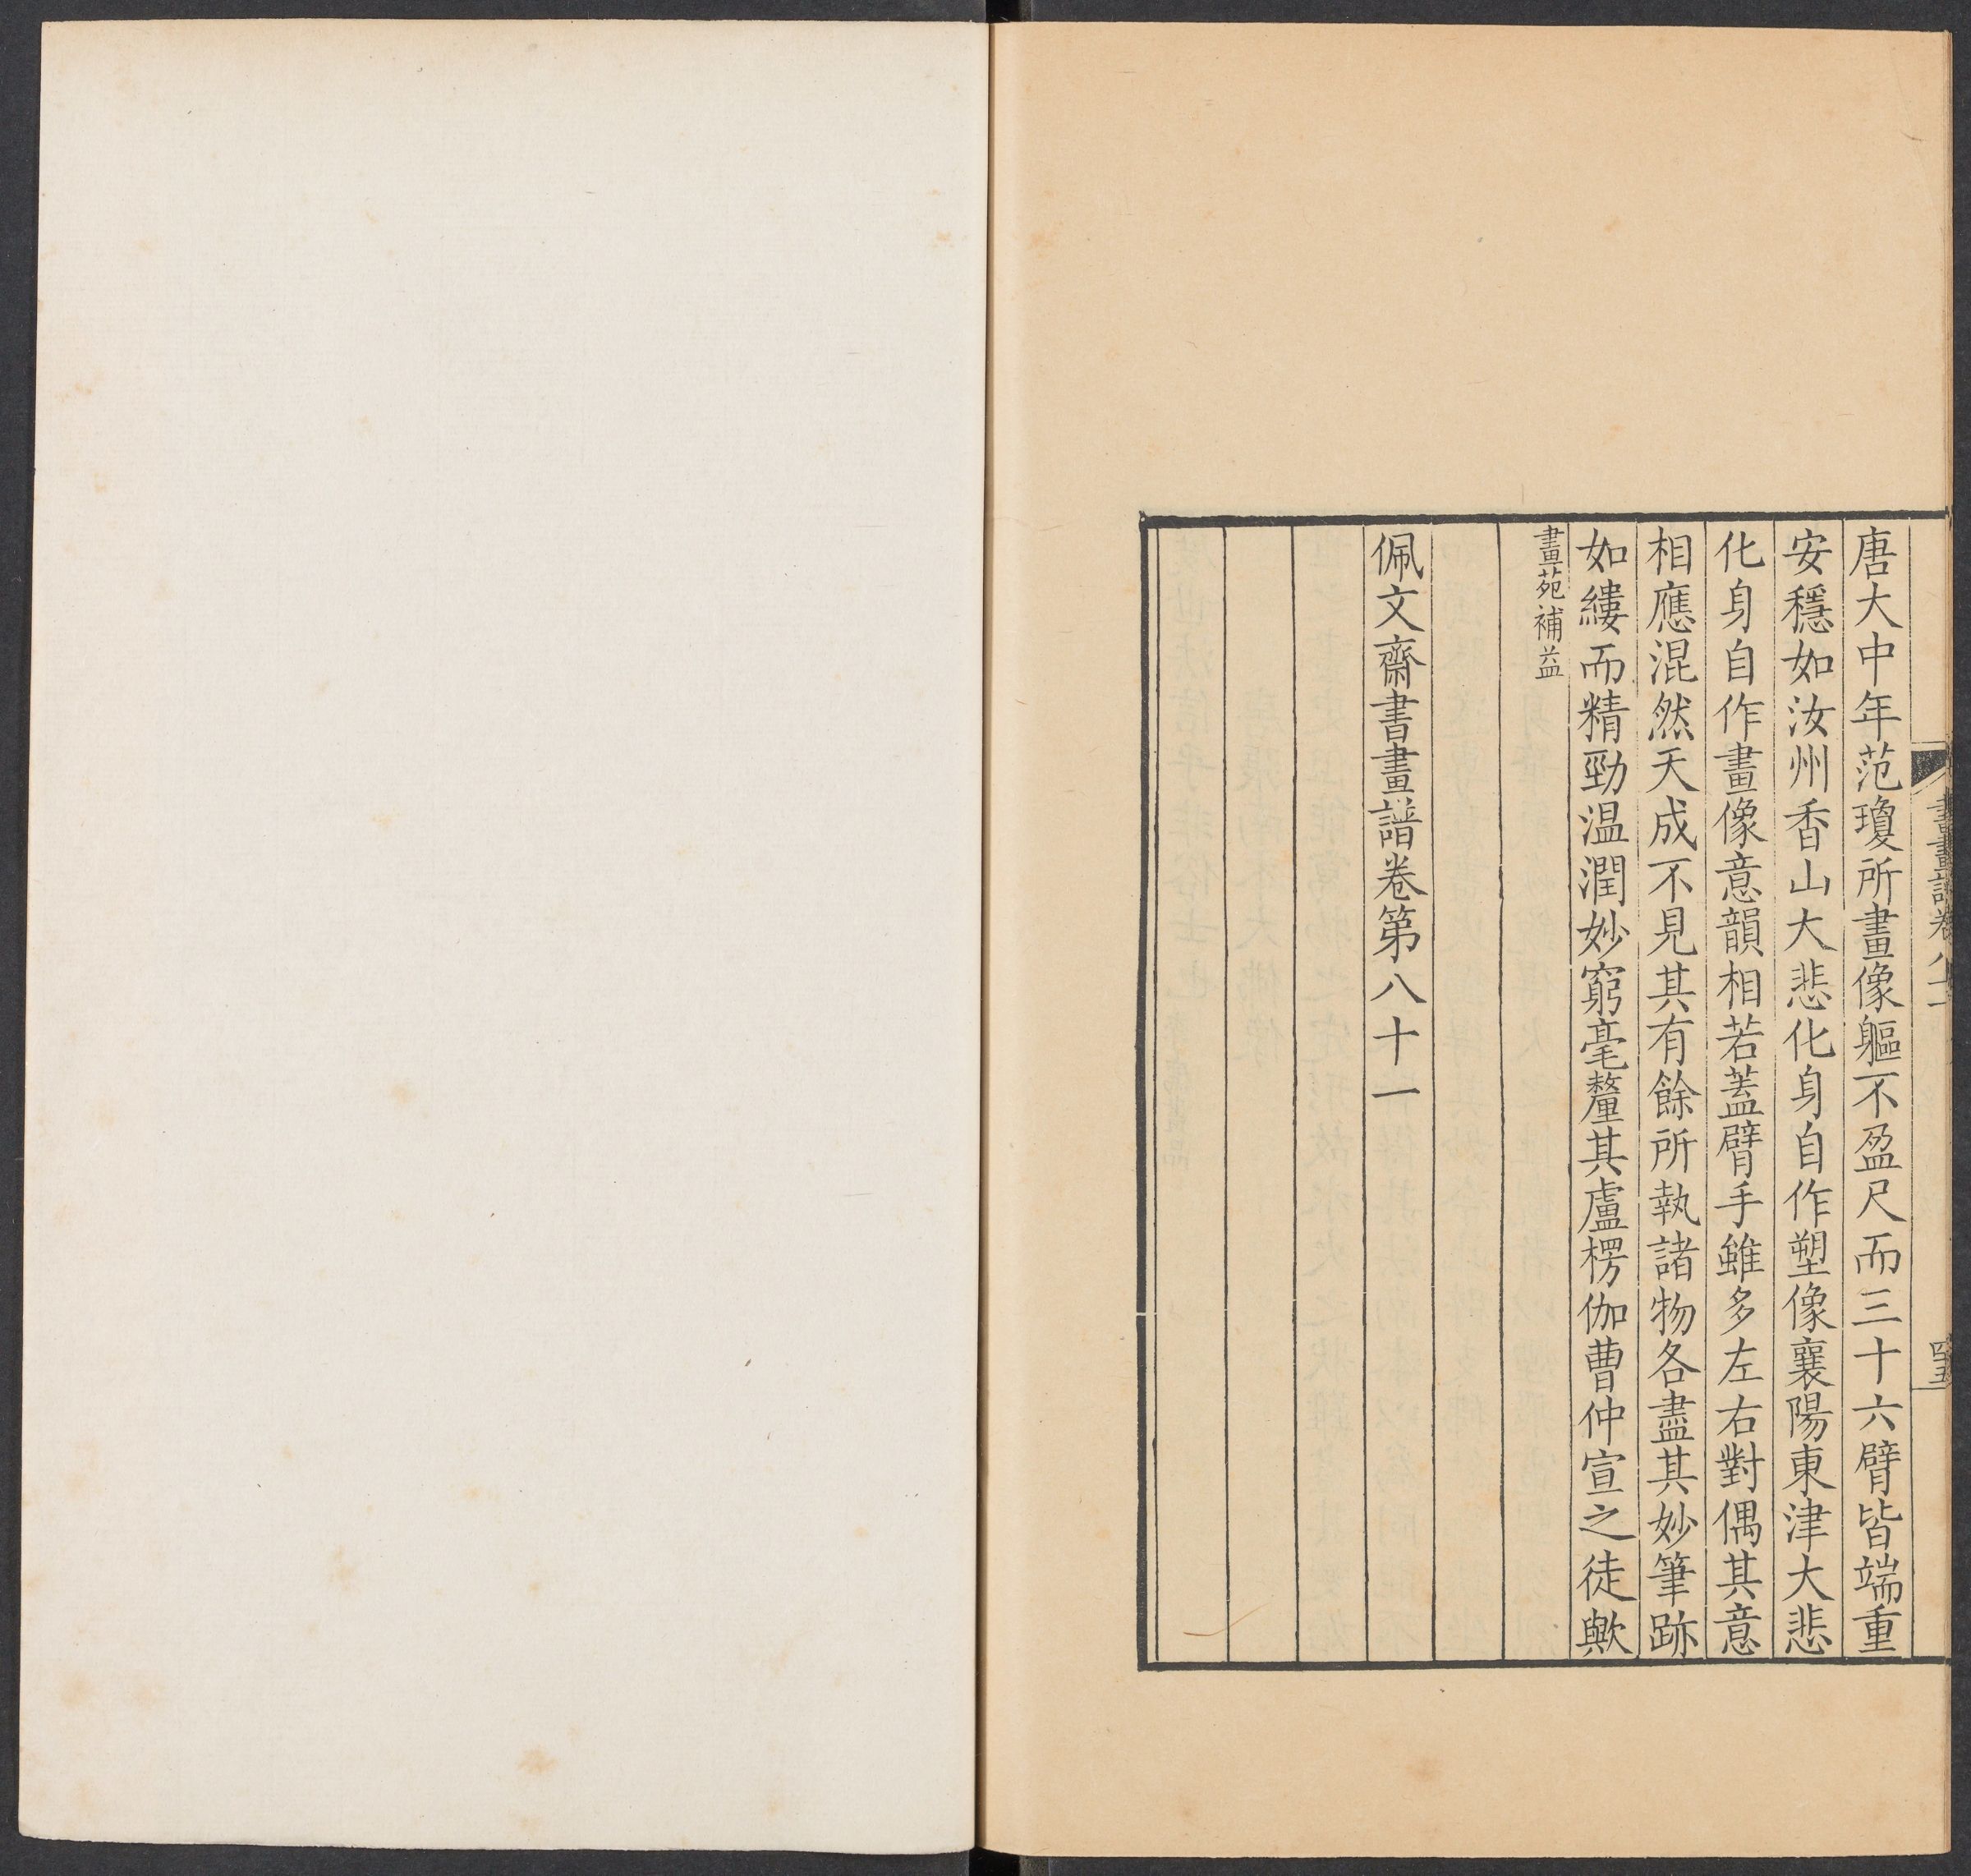 書畫譜卷八十一
四十五
唐大中年范瓊所畫像軀不盈尺而三十六臂皆端重
安穩如汝州香山大悲化身自作塑像襄陽東津大悲
化身自作畫像意韻相若蓋臂手雖多左右對偶其意
相應混然天成不見其有餘所執諸物各盡其妙筆跡
如縷而精勁温潤妙窮毫釐其盧楞伽曹仲宣之徒歟
畫苑補益
佩文齋書畫譜卷第八十一